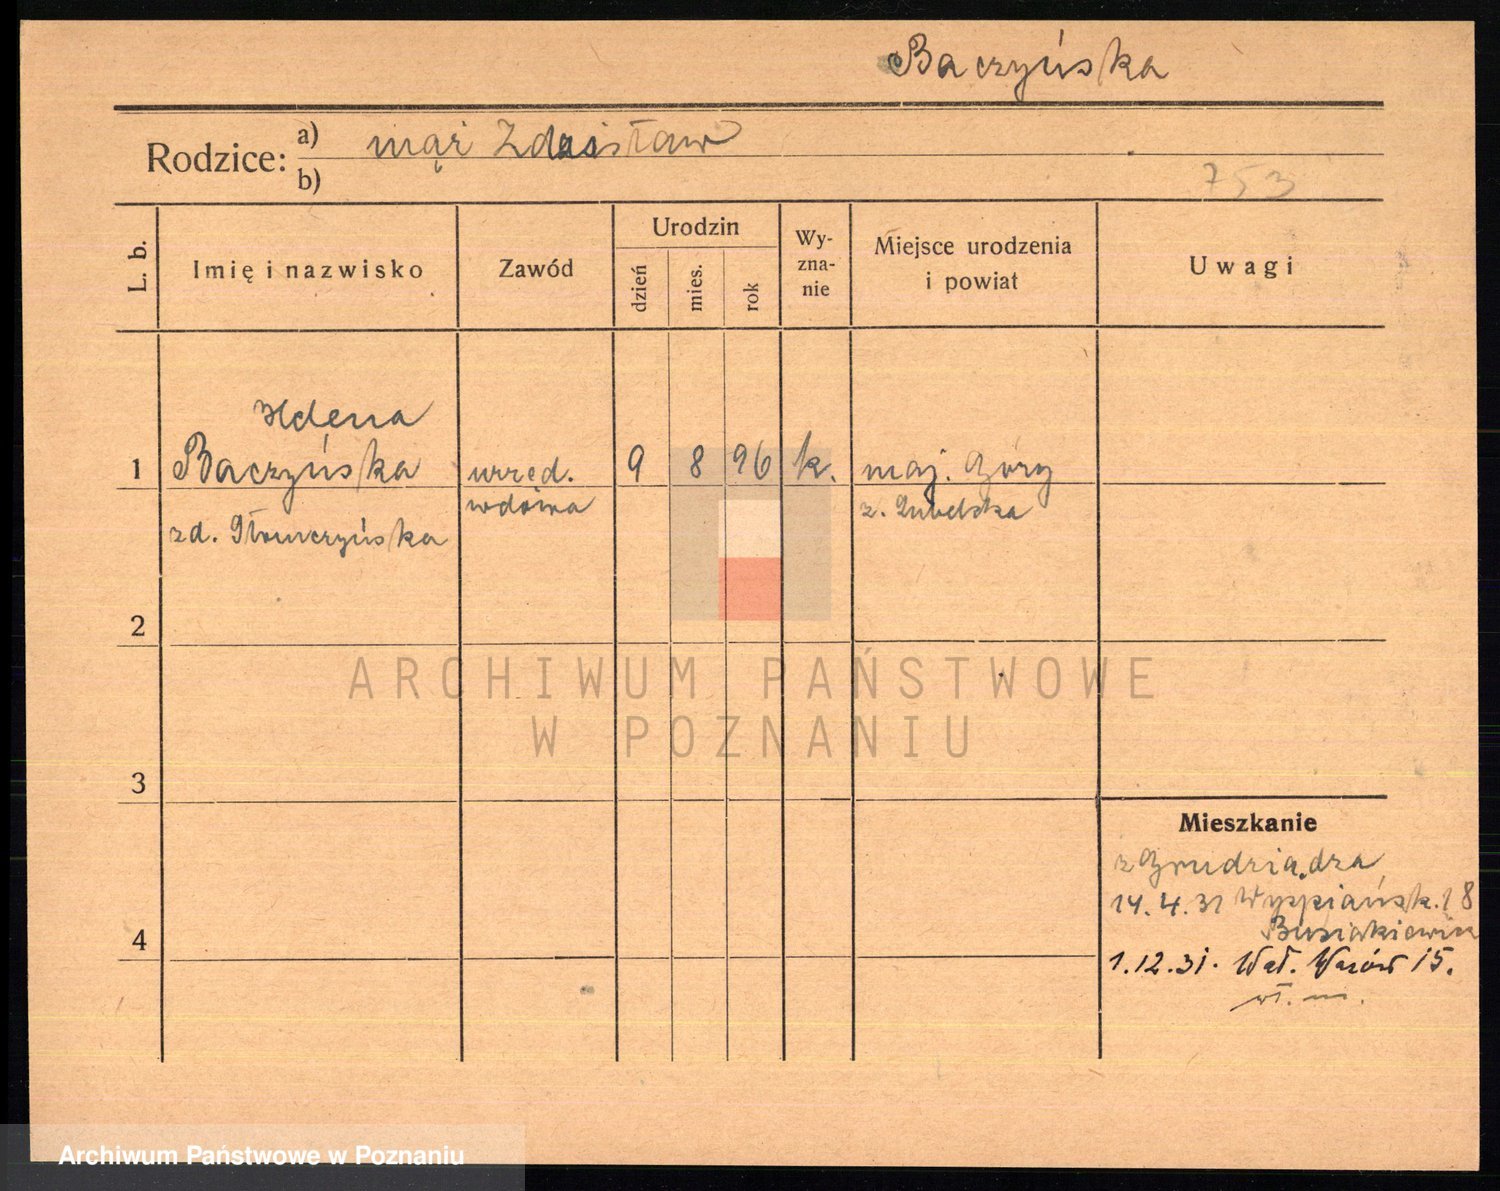 Baczyńska
Rodzice: a) mąż Zdzisław
b)
753
L. b.
Imię i nazwisko
Zawód
Urodzin
dzień
mies.
rok
Wy-
zna-
nie
Miejsce urodzenia
i powiat
Uwagi
Helena
1 Baczyńska urzęd. 9 8 96 k. maj. Góry
wdowa z. Lubelska
zd. Słomczyńska
2
ARCHIWUM PAŃSTWOWE
W POZNANIU
3
Mieszkanie
z Grudziądza
14.4.31 Wyspiańsk. 18
4
1.12.31. Wał. Wazów 15.
wł. m.
Archiwum Państwowe w Poznaniu